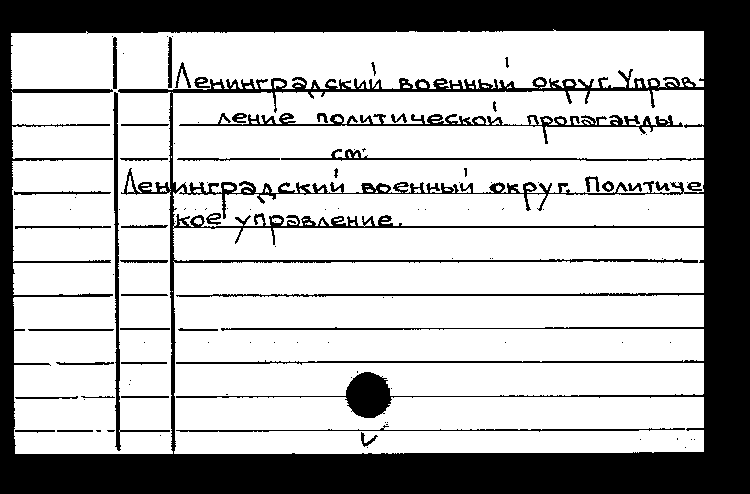 Ленинградский военный округ. Управ-
ление политической пропаганды.
см:
Ленинградский военный округ. Политичес
кое управление.